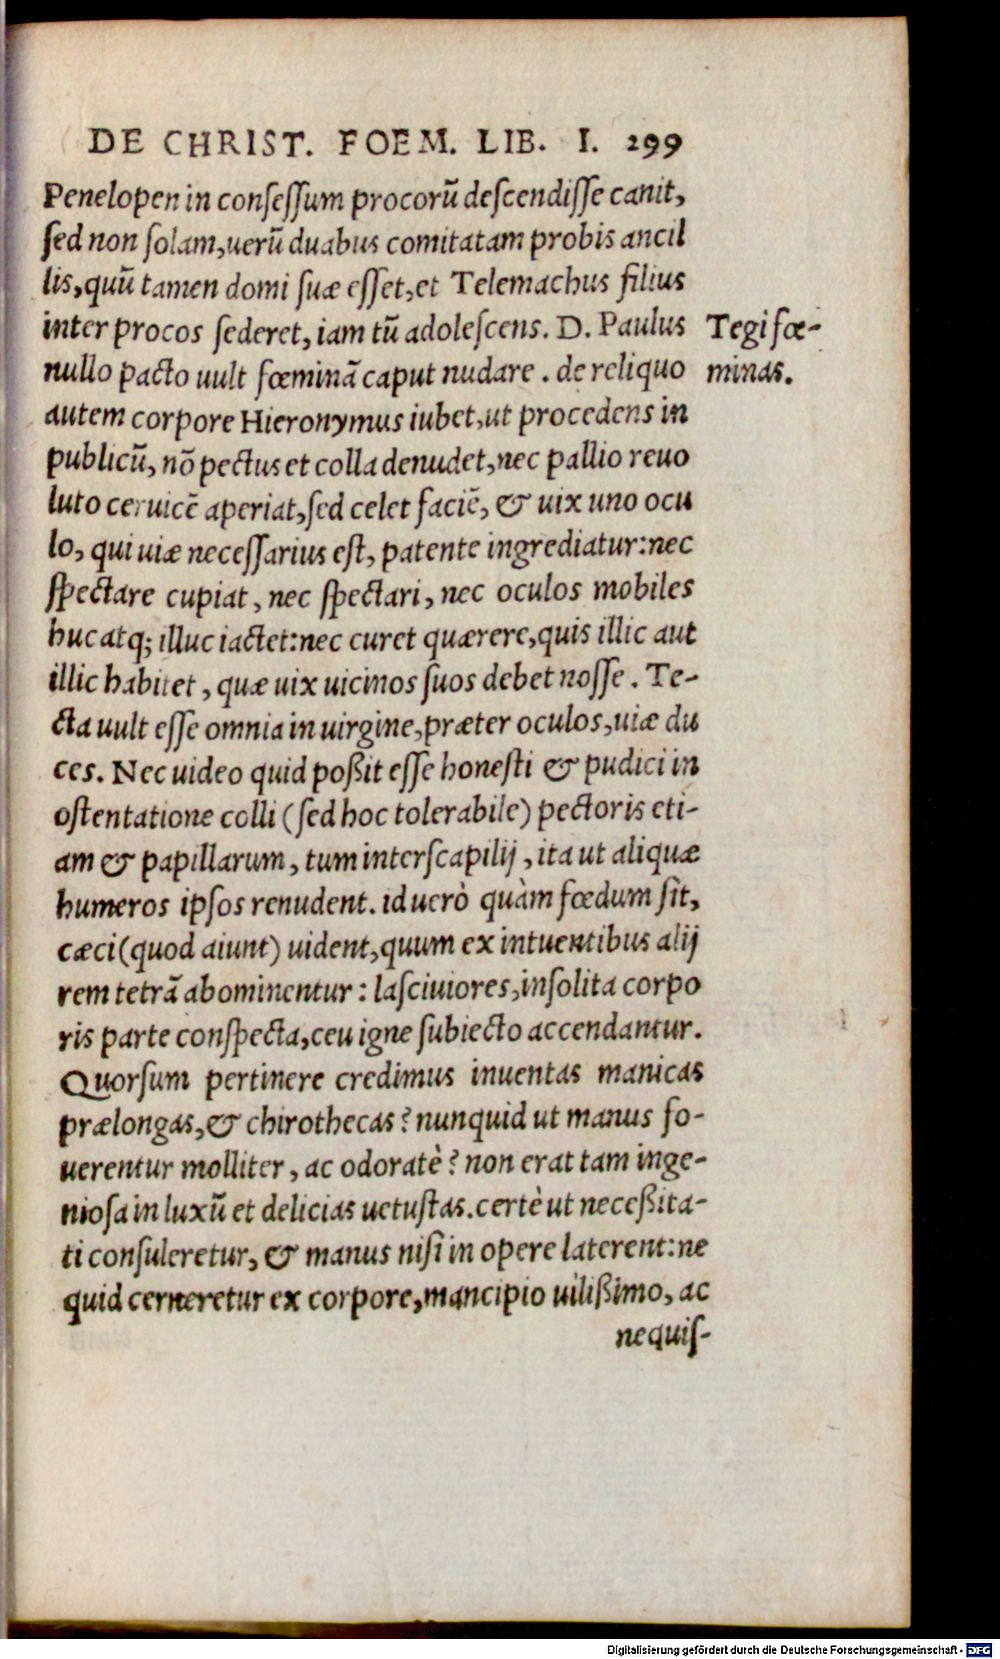 DE CHRIST. FOEM. LIB. I. 299
Penelopen in conſeſſum procorũ deſcendiſſe canit,
ſed non ſolam,uerũ duabus comitatam probis ancil
lis,quũ tamen domi ſuæ eſſet,et Telemachus filius
inter procos ſederet, iam tũ adoleſcens. D. Paulus
nullo pacto uult fœminã caput nudare . de reliquo
autem corpore Hieronymus iubet,ut procedens in
publicũ, nõ pectus et colla denudet,nec pallio reuo
luto ceruicẽ aperiat,ſed celet faciẽ, & uix uno ocu
lo, qui uiæ neceſſarius eſt, patente ingrediatur:nec
ſpectare cupiat, nec ſpectari, nec oculos mobiles
huc atq; illuc iactet:nec curet quærere,quis illic aut
illic habitet, quæ uix uicinos ſuos debet noſſe . Te-
cta uult eſſe omnia in uirgine,præter oculos,uiæ du
ces. Nec uideo quid poßit eſſe honeſti & pudici in
oſtentatione colli (ſed hoc tolerabile) pectoris eti-
am & papillarum, tum interſcapilij, ita ut aliquæ
humeros ipſos renudent. id uerò quàm fœdum ſit,
cæci(quod aiunt) uident,quum ex intuentibus alij
rem tetrã abominentur: laſciuiores,inſolita corpo
ris parte conſpecta,ceu igne ſubiecto accendantur.
Quorſum pertinere credimus inuentas manicas
prælongas,& chirothecas? nunquid ut manus fo-
uerentur molliter, ac odoratè? non erat tam inge-
nioſa in luxũ et delicias uetuſtas.certè ut neceßita-
ti conſuleretur, & manus niſi in opere laterent:ne
quid cerneretur ex corpore,mancipio uilißimo, ac
nequiſ-
Tegi fœ-
minas.
Digitalisierung gefördert durch die Deutsche Forschungsgemeinschaft - DFG